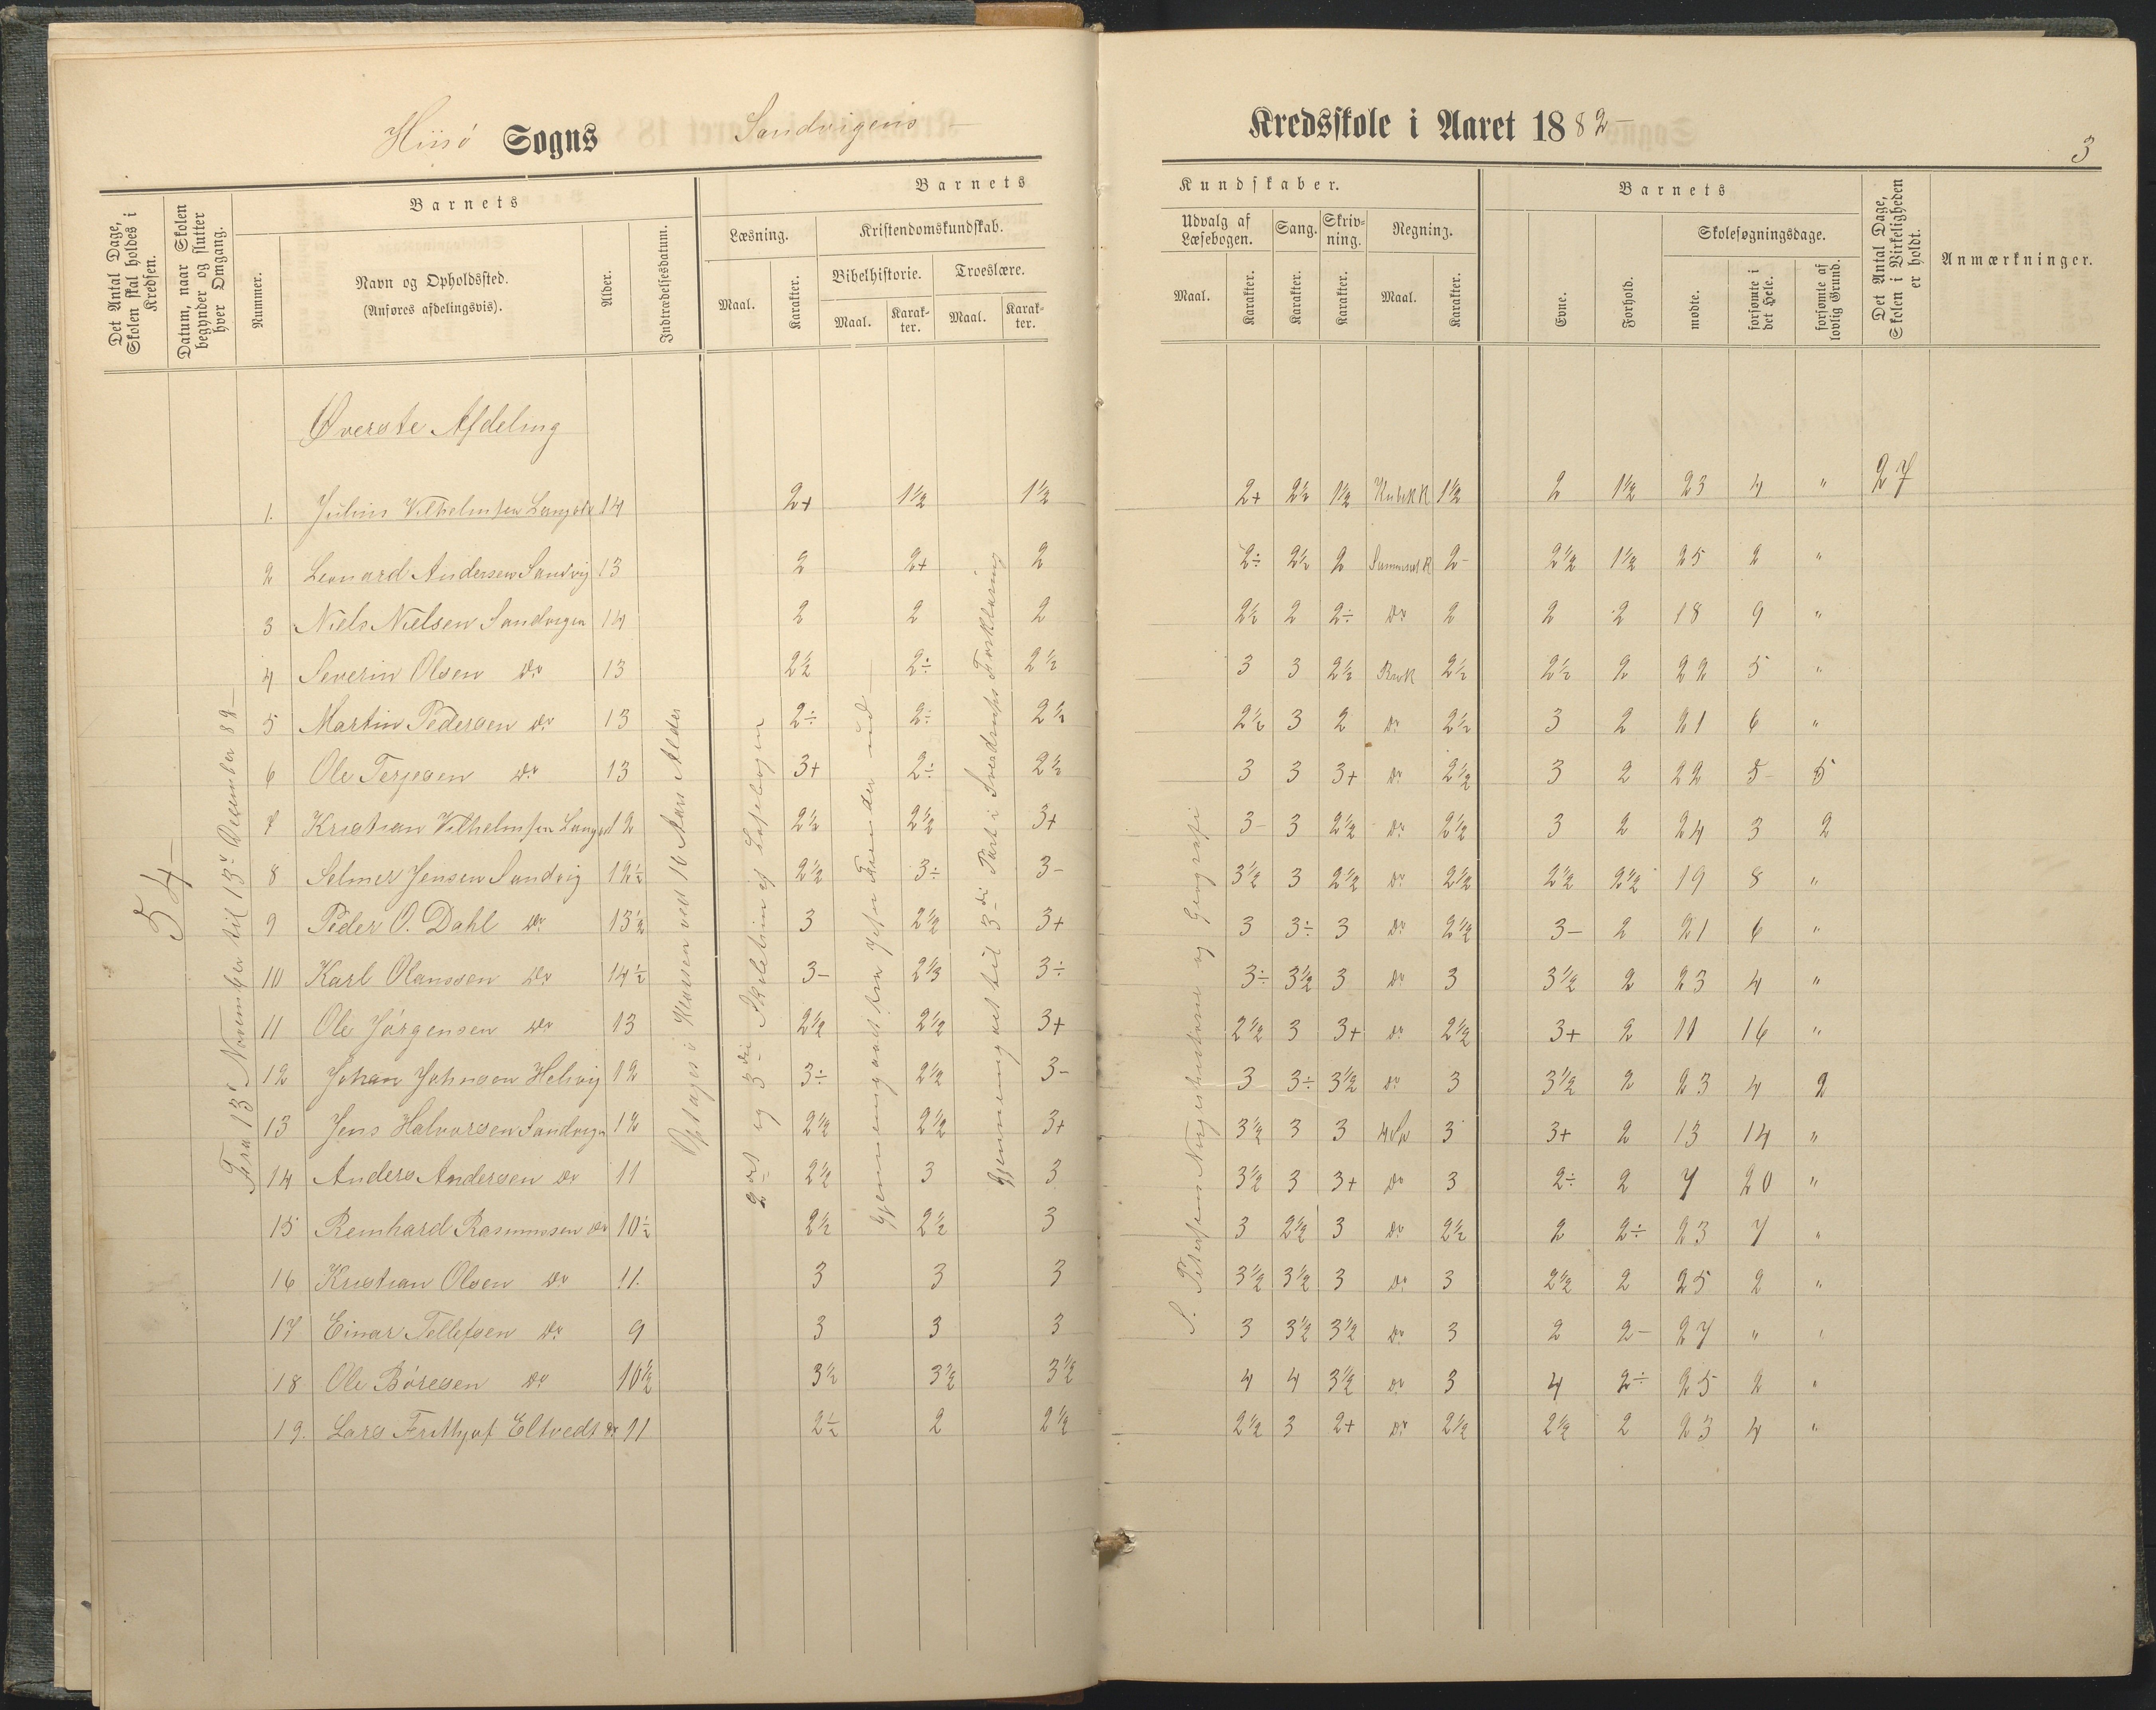 Hiisö Sogns Sandvigens Kredsskole i Aaret 1882-
3
Det Antal Dage, Skolen skal holdes i Kredsen.
Datum, naar Skolen begynder og slutter hver Omgang.
Barnets
Nummer.
Navn og Opholdssted.
(Anføres afdelingsvis).
Alder.
Indtrædelsesdatum.
Barnets
Læsning.
Maal.
Karakter.
Kristendomskundskab.
Bibelhistorie.
Maal.
Karakter.
Troeslære.
Maal.
Karakter.
Kundskaber.
Udvalg af Læsebogen.
Maal.
Karakter.
Sang.
Karakter.
Skrivning.
Karakter.
Regning.
Maal.
Karakter.
Barnets
Evne.
Forhold.
Skolesøgningsdage.
mødte.
forsømte i det Hele.
forsømte af lovlig Grund.
Det Antal Dage, Skolen i Virkeligheden er holdt.
Anmærkninger.
54
Fra 13de November til 13de December 82
Optages i Klassen ved 10 Aars Alder
2det og 3die Skoletrin af Læsebogen
Gjennemgaaet til 3die Part i Sverdrups Forklaring
S. Petersens Norgeshistorie og Geografi
Øverste Afdeling
1. Julius Vilhelmsen 14 2+ 1½ 1½ 2+ 2½ 1½ 1½ 2 1½ 23 4 " 27
2 Leonard Andersen Sandvig 13 2 2+ 2 2÷ 2½ 2 2- 2½ 1½ 25 2 "
3 Niels Nielsen Sandvigen 14 2 2 2 2½ 2 2÷ Do 2 2 2 18 9 "
4 Severin Olsen Do 13 2½ 2÷ 2½ 3 3 2½ 2½ 2½ 2 22 5 "
5 Martin Pedersen Do 13 2÷ 2÷ 2½ 2½ 3 2 Do 2½ 3 2 21 6 "
6 Ole Terjesen Do 13 3+ 2÷ 2½ 3 3 3+ Do 2½ 3 2 22 5 5
7 Kristian Vilhelmsen 12 2½ 2½ 3+ 3- 3 2½ Do 2½ 3 2 24 3 2
8 Selmer Jensen Sandvig 12½ 2½ 3÷ 3- 3½ 3 2½ Do 2½ 2½ 2½ 19 8 "
9 Peder O. Dahl Do 13½ 3 2½ 3+ 3 3÷ 3 Do 2½ 3- 2 21 6 "
10 Karl Olaussen Do 14½ 3- 2⅓ 3÷ 3÷ 3½ 3 Do 3 3½ 2 23 4 "
11 Ole Jörgensen Do 13 2½ 2½ 3+ 2½ 3 3+ Do 2½ 3+ 2 11 16 "
12 Johan Johnsen Helvig 12 3÷ 2½ 3- 3 3÷ 3½ Do 3 3½ 2 23 4 2
13 Jens Halvorsen Sandvigen 12 2½ 2½ 3+ 3½ 3 3 3 3+ 2 13 14 "
14 Anders Andersen Do 11 2½ 3 3 3½ 3 3+ Do 3 2÷ 2 7 20 "
15 Reinhard Rasmussen Do 10½ 2½ 2½ 3 3 2½ 3 Do 2½ 2 2÷ 23 7 "
16 Kristian Olsen Do 11. 3 3 3 3½ 3½ 3 Do 3 2½ 2 25 2 "
17 Einar Tellefsen Do 9 3 3 3 3 3½ 3½ Do 3 2 2- 27 " "
18 Ole Böresen Do 10½ 3½ 3½ 3½ 4 4 3½ Do 3 4 2÷ 25 2 "
19. Lars Frithjof Eltvedt Do 11 2½ 2 2½ 2½ 3 2+ Do 2½ 2½ 2 23 4 "